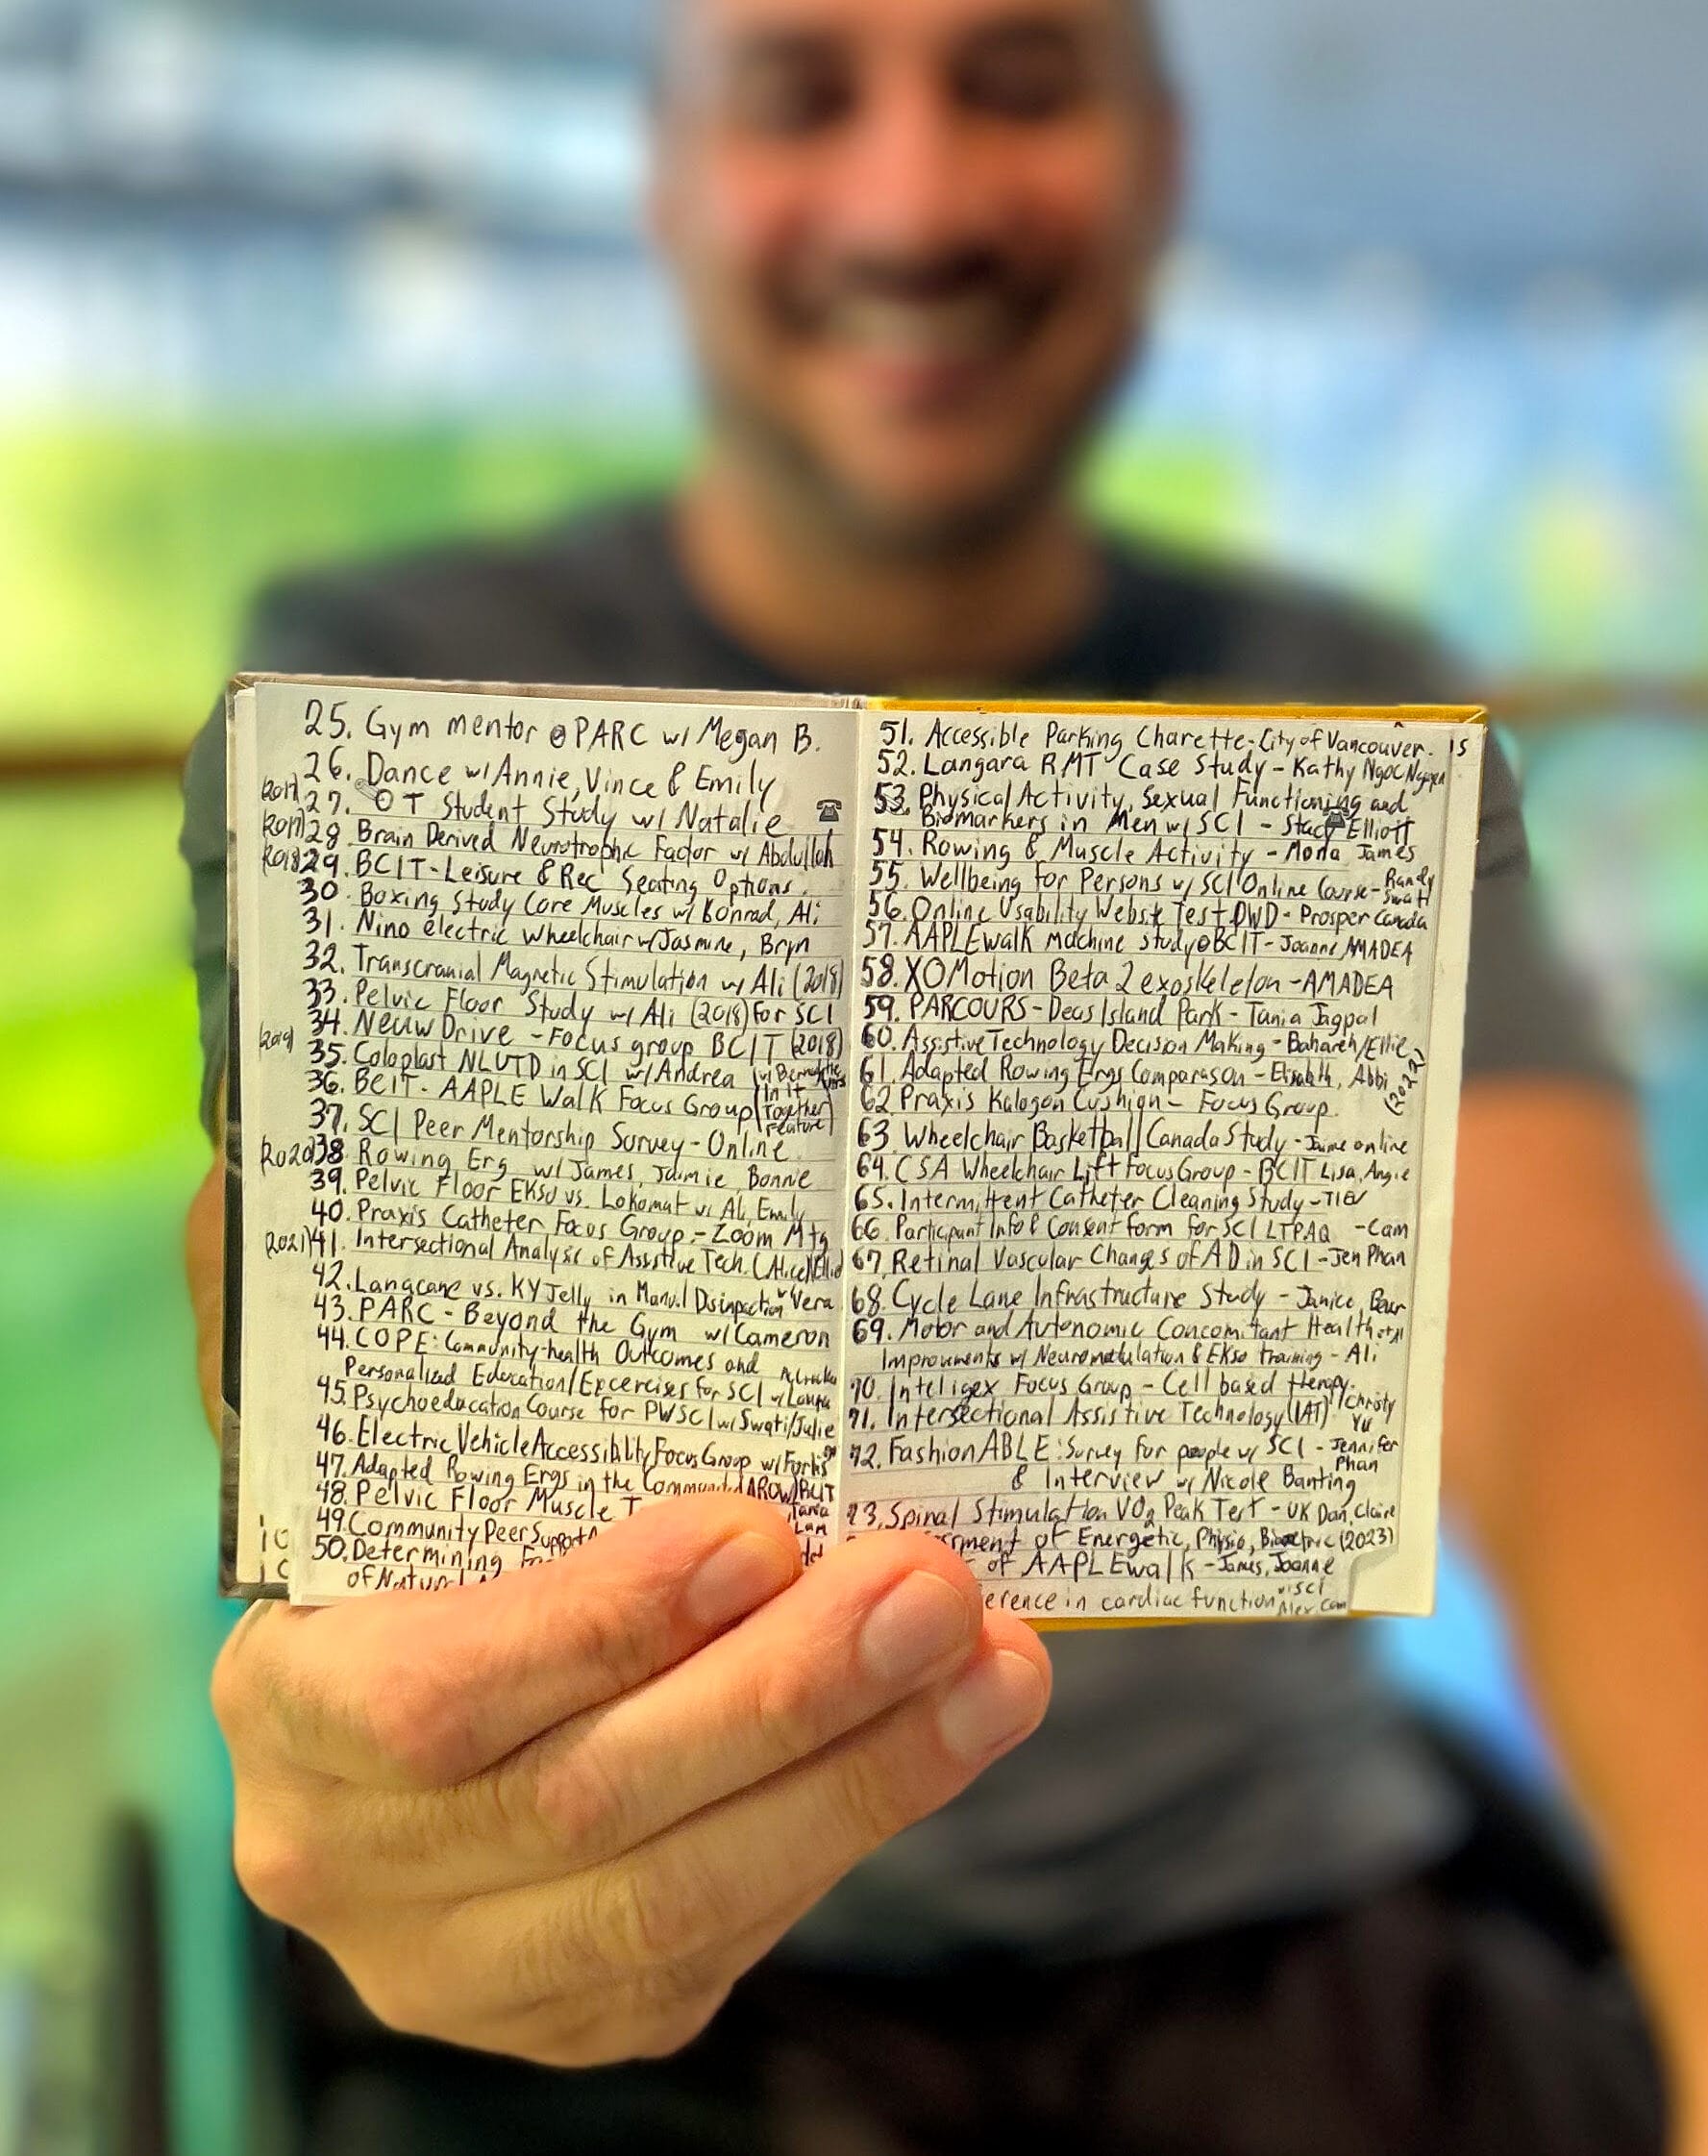 25. Gym mentor @PARC w/ Megan B.
26. Dance w/ Annie, Vince & Emily
(2017) 27. OT Student Study w/ Natalie
(2017) 28. Brain Derived Neurotrophic Factor w/ Abdullah
(2018) 29. BCIT-Leisure & Rec Seating Options.
30. Boxing Study Core Muscles w/ Konrad, Ali
31. Nino electric wheelchair w/ Jasmine, Bryn
32. Transcranial Magnetic Stimulation w/ Ali (2018)
33. Pelvic Floor Study w/ Ali (2018) for SCI
34. Neuw Drive - Focus group BCIT (2018)
(2019) 35. Coloplast NLUTD in SCI w/ Andrea
36. BCIT - AAPLE Walk Focus Group (In it Together feature)
37. SCI Peer Mentorship Survey - Online
(2020) 38. Rowing Erg w/ James, Jaimie, Bonnie
39. Pelvic Floor EKSO vs. Lokomat w/ Ali, Emily
40. Praxis Catheter Focus Group - Zoom Mtg
(2021) 41. Intersectional Analysis of Assistive Tech. (Alice)
42. Langcane vs. KY Jelly in Manual Disimpaction w/ Vera
43. PARC - Beyond the Gym w/ Cameron
44. COPE: Community-health Outcomes and
Personalised Education/Excercises for SCI w/ Laura
45. Psychoeducation Course for PWSCI w/ Swati/Julie
46. Electric Vehicle Accessiblity Focus Group w/ Fortis
47. Adapted Rowing Ergs in the Community (AROW) BCIT
48. Pelvic Floor Muscle Tania
49. Community Peer Support Lam
50. Determining
of Natural
51. Accessible Parking Charette - City of Vancouver.
52. Langara RMT Case Study - Kathy Ngoc Nguyen
53. Physical Activity, Sexual Functioning and
Biomarkers in Men w/ SCI - Stacy Elliott
54. Rowing & Muscle Activity - Mona James
55. Wellbeing for Persons w/ SCI Online Course - Randy Swati
56. Online Usability Website Test DWD - Prosper Canada
57. AAPLEwalk machine study @BCIT - Joanne AMADEA
58. XOMotion Beta 2 exoskeleton - AMADEA
59. PARCOURS - Deas Island Park - Tania Jagpal
60. Assistive Technology Decision Making - Bahareh/Ellie
61. Adapted Rowing Ergs Comparason - Elisabeth, Abbi (2022)
62. Praxis Kalogon Cushion - Focus Group.
63. Wheelchair Basketball Canada Study - Jaime online
64. CSA Wheelchair Lift Focus Group - BCIT Lisa, Angie
65. Intermittent Catheter Cleaning Study - TIEV
66. Participant Info & Consent form for SCI LTPAQ - Cam
67. Retinal Vascular Changes of AD in SCI - Jen Phan
68. Cycle Lane Infrastructure Study - Janice, Bear
69. Motor and Autonomic Concomitant Health
Improvments w/ Neuromodulation & EKSO training - Ali
70. Inteligex Focus Group - Cell based therapy.
71. Intersectional Assistive Technology (IAT) - Christy Yu
72. FashionABLE: Survey for people w/ SCI - Jennifer Phan
& Interview w/ Nicole Banting
73. Spinal Stimulation VO2 Peak Test - UK Dan, Claire
of Energetic, Physio, Biometric (2023)
of AAPLEwalk - James, Joanne
in cardiac function w/ SCI
Alex, Cam